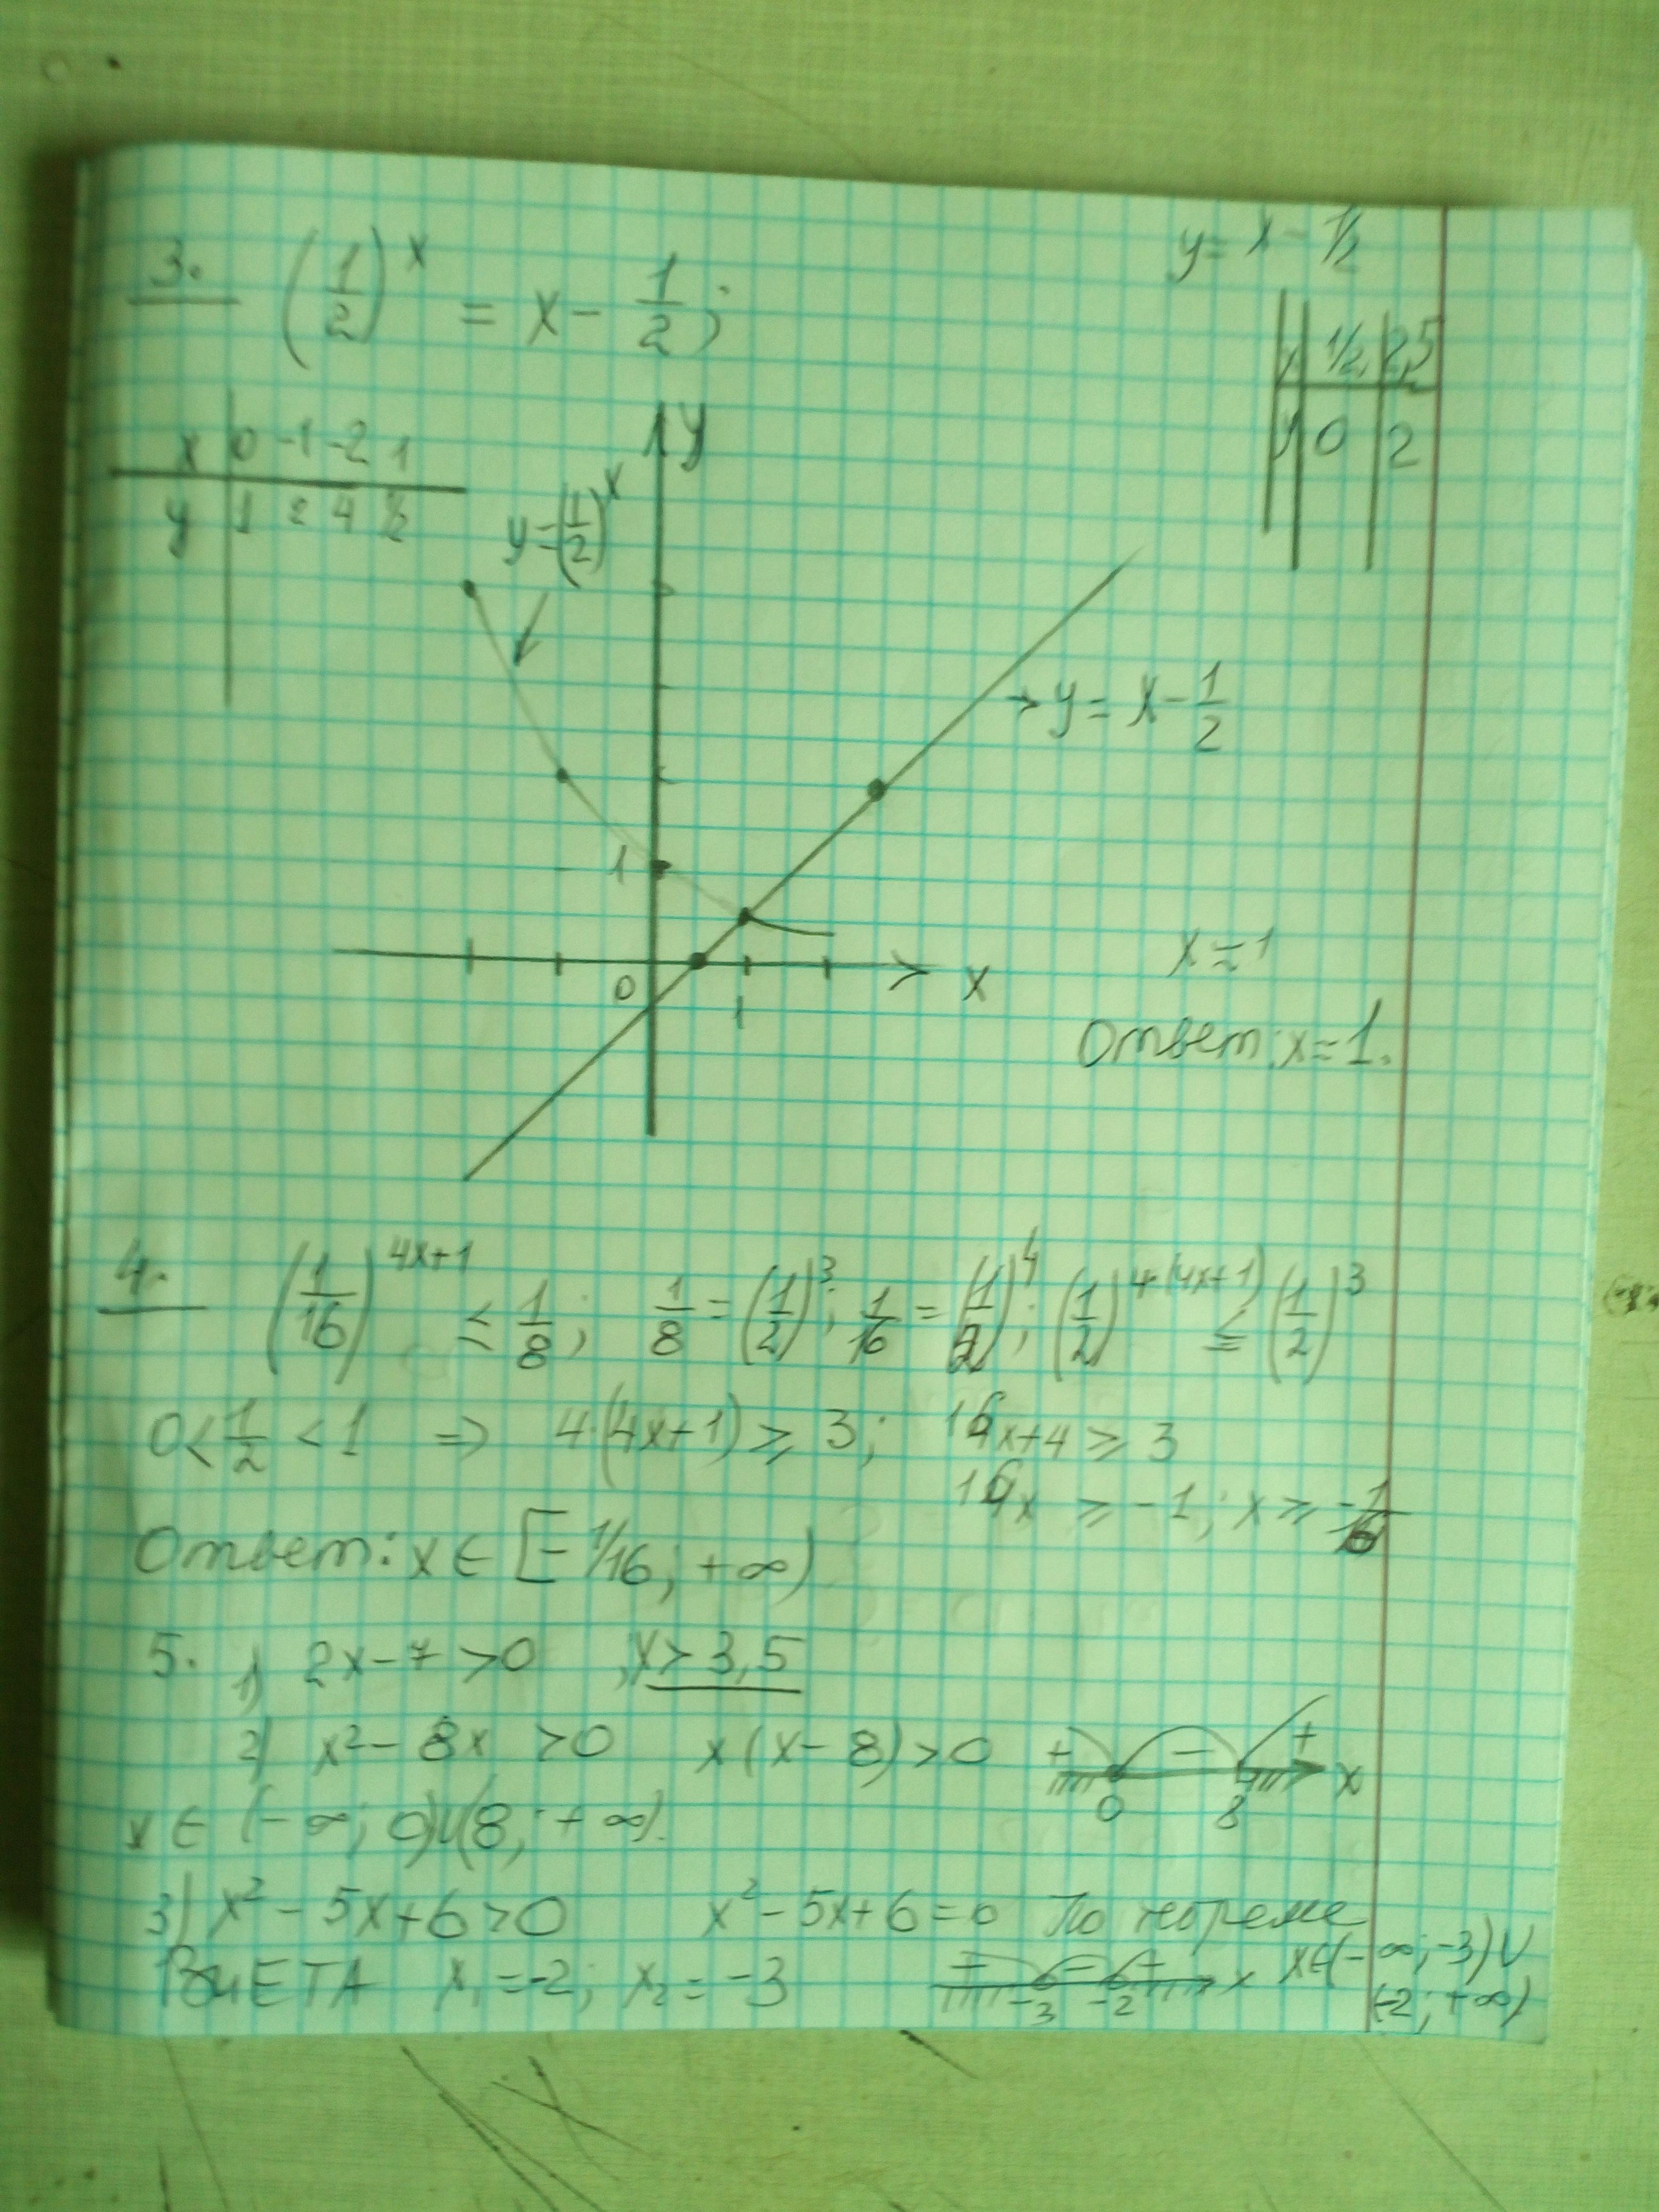 3. (1/2)^x = x - 1/2;
y = x - 1/2
x | 1/2, | 2,5
y | 0 | 2
x | 0 -1 -2 1
y | 1 2 4 1/2
y
y=(1/2)^x
→ y = x - 1/2
1
0
1
x
x = 1
Ответ: x = 1.
4. (1/16)^(4x+1) ≤ 1/8; 1/8 = (1/2)^3; 1/16 = (1/2)^4; (1/2)^(4·(4x+1)) ≤ (1/2)^3
0 < 1/2 < 1 ⇒ 4·(4x+1) ≥ 3; 16x+4 ≥ 3
16x ≥ -1; x ≥ -1/16
Ответ: x ∈ [-1/16; +∞)
5. 1) 2x-7 >0 ; x > 3,5
2) x² - 8x >0 x(x-8)>0 + - + x
0 8
x ∈ (-∞; 0)∪(8; +∞).
3) x² - 5x+6>0 x² - 5x+6=0 По теореме
ВИЕТА x₁ = -2; x₂ = -3 + - + x x∈(-∞; -3)∪
-3 -2 (-2; +∞)